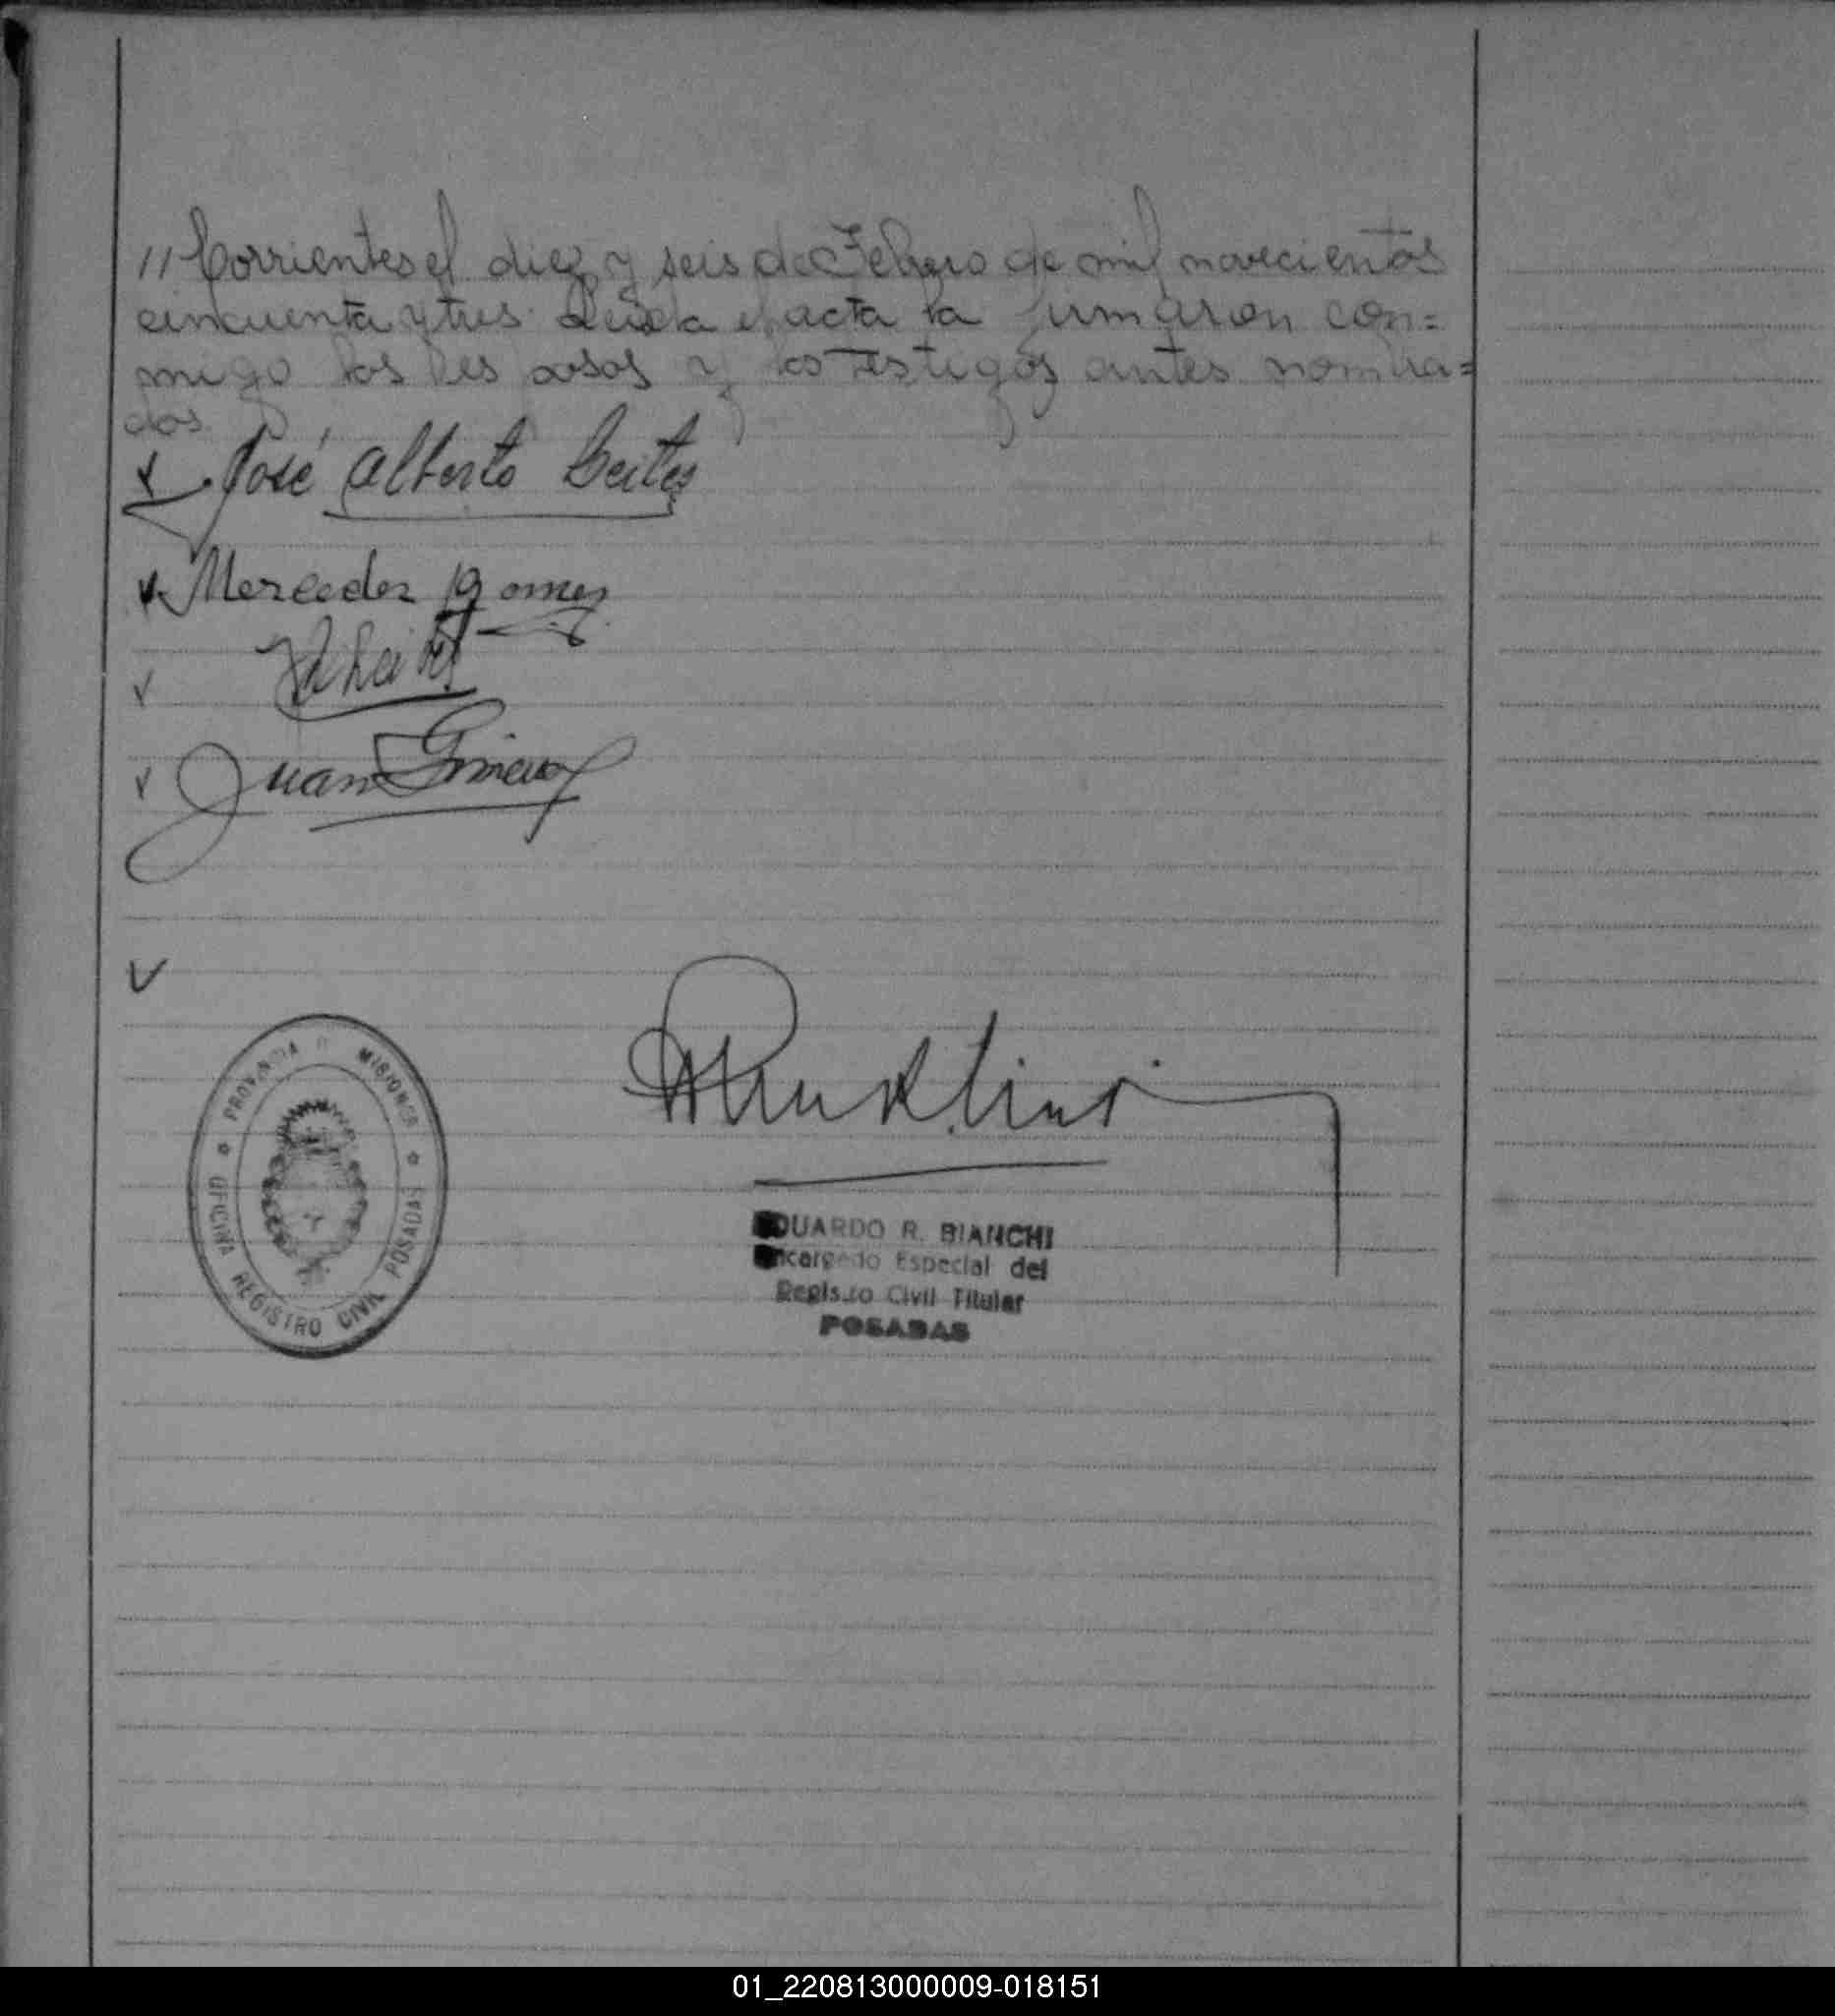 // Corrientes el diez y seis de Febrero de mil novecientos
cincuenta y tres. Leida el acta la firmaron con=
migo los Es posos y los Testigos antes nombra=
dos.
José Alberto Leites
Mercedes Gomes
Juan Gimenez
PROVINCIA DE MISIONES
OFICINA REGISTRO CIVIL POSADAS
EDUARDO R. BIANCHI
Encargado Especial del
Registro Civil Titular
POSADAS
01_220813000009-018151